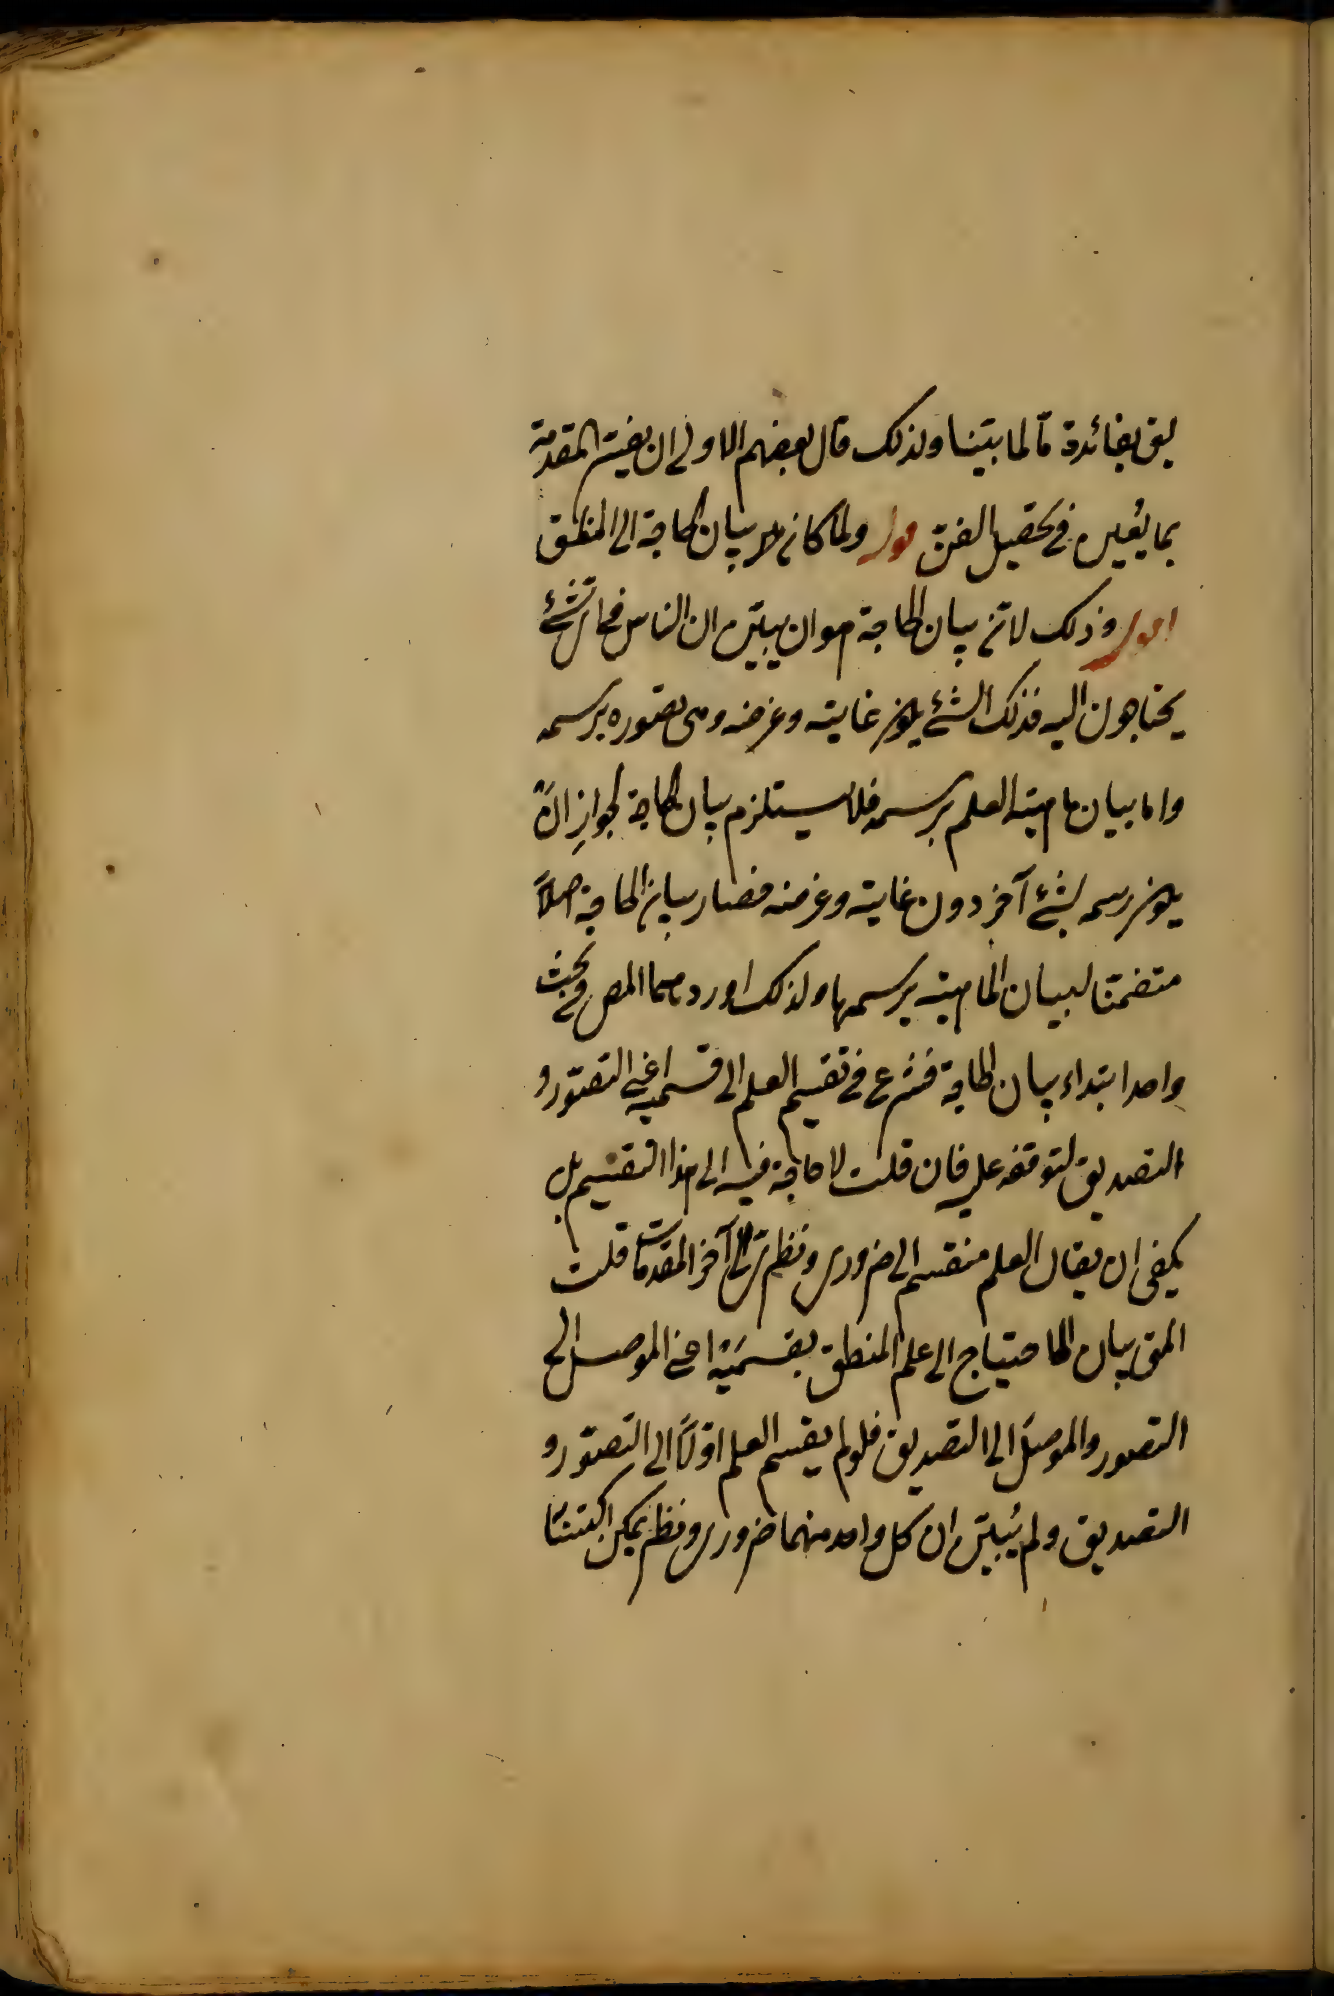 يق بفائدة ما لما بيّنا ولذلك قال بعضهم الاولى ان يفسّر المقدمة
بما يُعين في تحصيل الفنّ قوله ولما كان بيان الحاجة الى المنطق
اقول وذلك لانّ بيان الحاجة هو ان يبيّن ان الناس في اىّ شئ
يحتاجون اليه فذلك الشئ يكون غايته وغرضه ومن تصوره برسمه
واما بيان ماهية العلم برسمه فلا يستلزم بيان الحاجة لجواز ان
يكون رسمه بشئ آخر دون غايته وغرضه فصار بيان الحاجة اصلاً
متضمنّا لبيان الماهية برسمها ولذلك اوردهما المص في بحث
واحد ابتداء ببيان الحاجة فشرع في تقسيم العلم الى قسميه اعنى التصوّر و
التصديق لتوقفه عليه فان قلت لا حاجة فيه الى هذا التقسيم بل
يكفى ان يقال العلم منقسم الى ضرورى ونظرى الى آخر المقدمات قلت
المق بيان الاحتياج الى علم المنطق بقسميه اعنى الموصل الى
التصور والموصل الى التصديق فلو لم يقسم العلم اوّلاً الى التصوّر و
التصديق ولم يُبيّن ان كل واحد منهما ضرورى ونظرى يمكن اكتسا